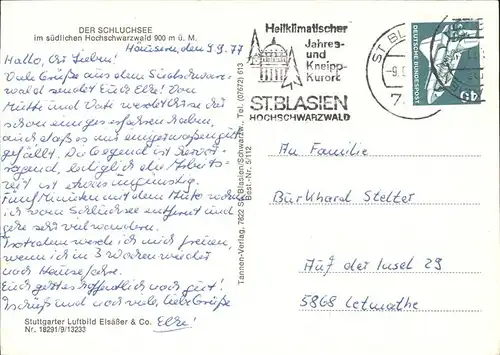 DER SCHLUCHSEE
im südlichen Hochschwarzwald 900 m ü. M.
Häusern, den 9.9.77
Hallo, Ihr Lieben!
Viele Grüße aus dem Südschwarz-
wald sendet Euch Elke! Von
Mutti und Vati werdet Ihr es
schon einiges erfahren haben,
auch daß es mir einigermaßen gut
gefällt. Die Gegend ist hervor-
ragend, lediglich die Arbeits-
zeit ist etwas ungünstig.
Fünf Minuten mit dem Auto
ich vom Schluchsee entfernt und
gehe sehr viel wandern.
Trotzdem werde ich mich freuen,
wenn ich in 3 Wochen wieder
nach Hause fahre.
Euch geht es hoffentlich noch gut!
Tschüß und noch viele, liebe Grüße
Elke!
Stuttgarter Luftbild Elsäßer & Co.
Nr. 18291/9/13233
Tannen-Verlag, 7822 St. Blasien/Schwarzw., Tel. (07672) 613
Best.-Nr. 5/112
Heilklimatischer
Jahres-
und
Kneipp-
Kurort
ST.BLASIEN
HOCHSCHWARZWALD
ST BL
-9.
7
DEUTSCHE BUNDESPOST
An Familie
Burkhard Stelter
Auf der Insel 29
5868 Letmathe